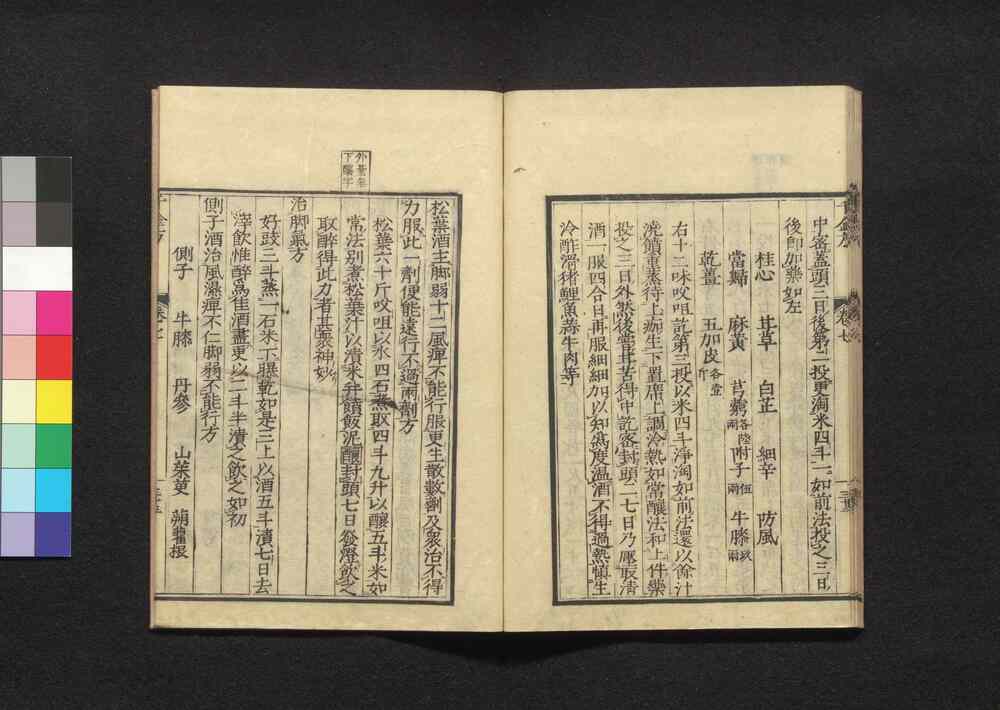 中密蓋頭三日後第二投更淘米四斗一如前法投之三日
後即加藥如左
桂心 甘草 白芷 細辛 防風
當歸 麻黃 芎藭各陸兩 附子伍兩 牛膝玖兩
乾薑 五加皮各壹斤
右十二味㕮咀訖第三投以米四斗淨淘如前法還以餘汁
澆饋重蒸待上痂生下置席上調冷熱如常釀法和上件藥
投之三日外然後嘗甘苦得中訖密封頭二七日乃壓取清
酒一服四合日再服細細加以知為度溫酒不得過熱慎生
冷酢滑猪鯉魚蒜牛肉等
千金方
卷七
外臺無下釀字
松葉酒主脚弱十二風痺不能行服更生散數劑及衆治不得
力服此一劑便能遠行不過兩劑方
松葉六十斤㕮咀以水四石煮取四斗九升以釀五斗米如
常法別煮松葉汁以漬米并饋飯泥釀封頭七日發澄飲之
取醉得此力者甚衆神妙
治脚氣方
好豉三斗蒸一石米下曝乾如是三上以酒五斗漬七日去
滓飲惟醉為佳酒盡更以二斗半漬之飲之如初
側子酒治風濕痺不仁脚弱不能行方
側子 牛膝 丹參 山茱萸 蒴藋根